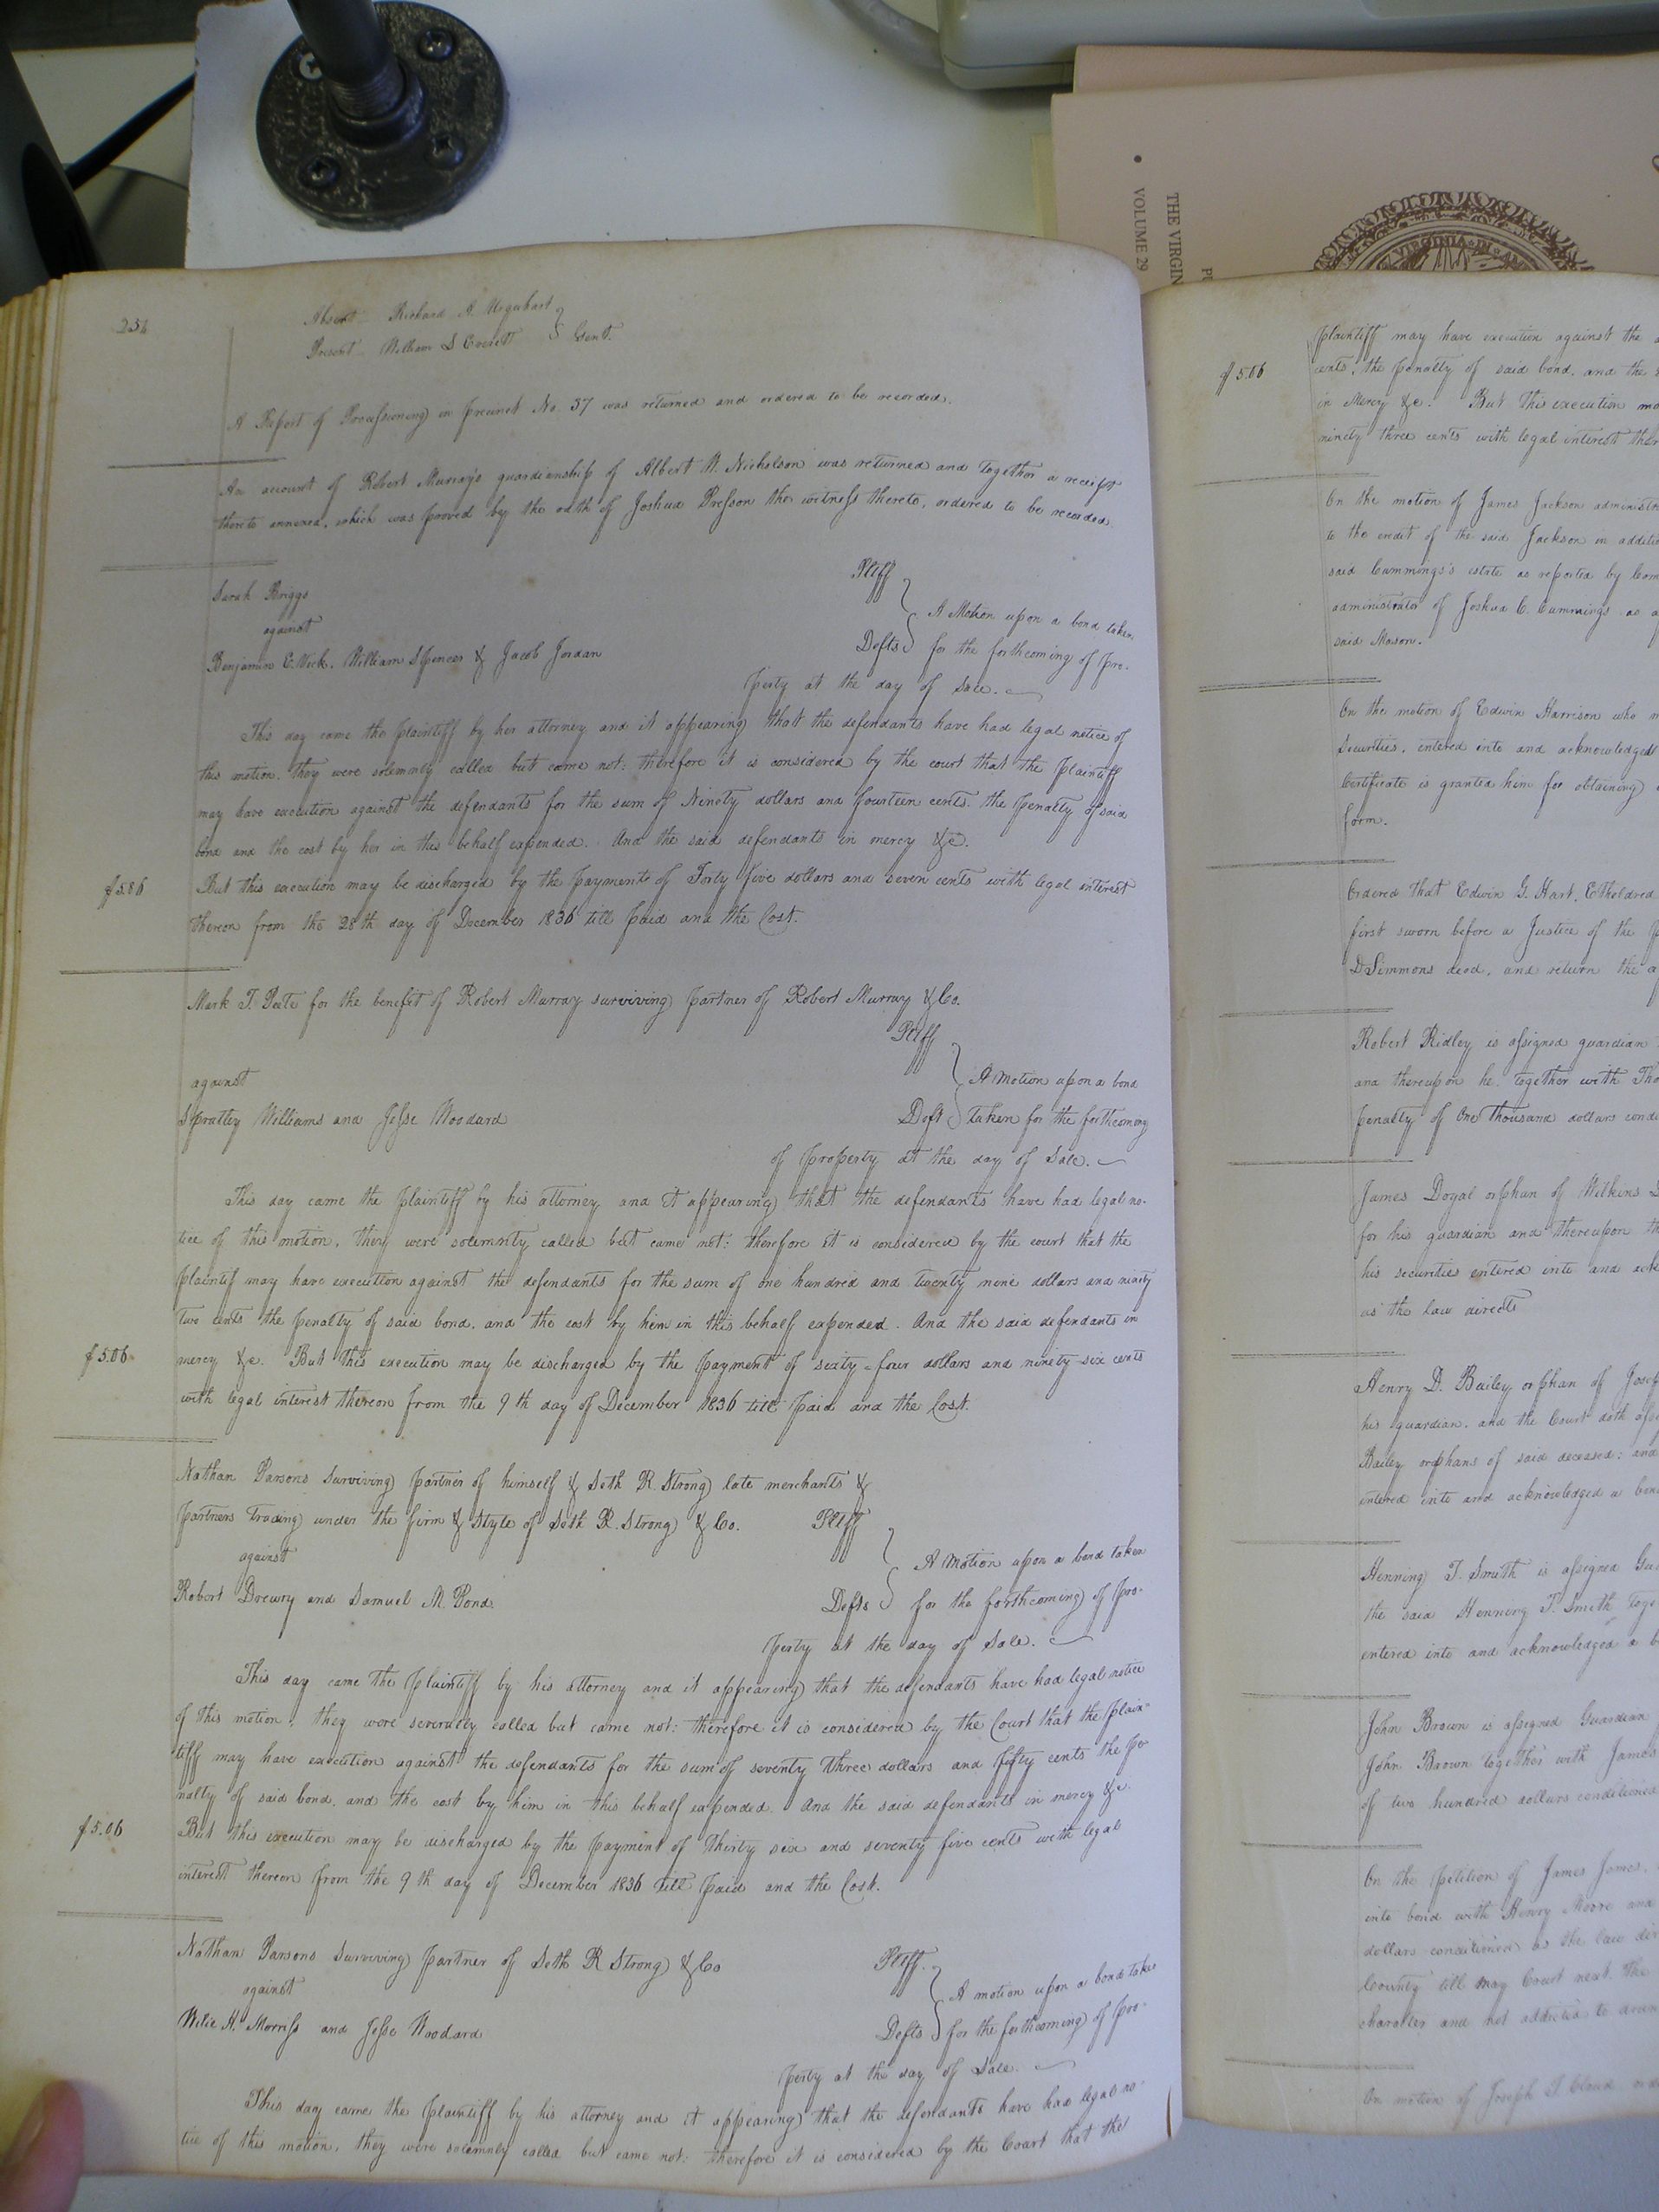 THE VIRGIN
VOLUME 29
VIRGINIA
Absent Richard A. Urquhart
Present William S Everett } Gent.
A Report of Processioning in precinct No. 37 was returned and ordered to be recorded.
An account of Robert Murray's guardianship of Albert W. Nicholson was returned and together a receipt
thereto annexed, which was proved by the oath of Joshua Presson the witness thereto, ordered to be recorded.
Sarah Briggs Pltff
against } A Motion upon a bond taken
Benjamin E. Vick, William Spencer & Jacob Jordan Defts } for the forthcoming of pro-
perty at the day of Sale.
This day came the plaintiff by her attorney and it appearing that the defendants have had legal notice of
this motion, they were solemnly called but came not: therefore it is considered by the court that the plaintiff
may have execution against the defendants for the sum of Ninety dollars and fourteen cents. the penalty of said
bond and the cost by her in this behalf expended. And the said defendants in mercy &c.
But this execution may be discharged by the payment of Forty five dollars and seven cents with legal interest
thereon from the 28th day of December 1836 till paid and the Cost.
Mark T. Pete for the benefit of Robert Murray surviving partner of Robert Murray & Co.
Pltff
against } A Motion upon a bond
Spratley Williams and Jesse Woodard Deft } taken for the forthcoming
of property at the day of Sale.
This day came the plaintiff by his attorney and it appearing that the defendants have had legal no-
tice of this motion, they were solemnly called but came not: therefore it is considered by the court that the
plaintif may have execution against the defendants for the sum of one hundred and twenty nine dollars and ninety
two cents the penalty of said bond, and the cost by him in this behalf expended. And the said defendants in
$5.06 mercy &c. But this execution may be discharged by the payment of sixty-four dollars and ninety six cents
with legal interest thereon from the 9th day of December 1836 till paid and the Cost.
Nathan Parsons Surviving partner of himself & Seth R. Strong late merchants &
partners trading under the firm & Style of Seth R. Strong & Co. Pltff
against } A Motion upon a bond taken
Robert Drewry and Samuel M. Pond Defts } for the forthcoming of pro-
perty at the day of Sale.
This day came the Plaintiff by his attorney and it appearing that the defendants have had legal notice
of this motion, they were severally called but came not: therefore it is considered by the Court that the plain-
tiff may have execution against the defendants for the sum of seventy three dollars and fifty cents the pe-
nalty of said bond, and the cost by him in this behalf expended. And the said defendants in mercy &c.
$5.06 But this execution may be discharged by the payment of thirty six and seventy five cents with legal
interest thereon from the 9th day of December 1836 till paid and the Cost.
Nathan Parsons Surviving partner of Seth R Strong & Co Pltff.
against } A motion upon a bond taken
Wilie H. Morriss and Jesse Woodard Defts } for the forthcoming of pro-
perty at the day of Sale.
This day came the plaintiff by his attorney and it appearing that the defendants have had legal no-
tice of this motion, they were solemnly called but came not: therefore it is considered by the Court that the
plaintiff may have execution against the
$5.06 cents, the penalty of said bond, and the
in Mercy &c. But this execution
ninety three cents with legal interest
On the motion of James Jackson
to the credit of the said Jackson in
said Cummings's estate as reported by
administrator of Joshua C. Cummings as
said Mason.
On the motion of Edwin Harrison who
Securities, entered into and acknowledged
Certificate is granted him for obtaining
form.
Ordered that Edwin G. Hart, Etheldred
first sworn before a Justice of the
D Simmons decd, and return the
Robert Ridley is assigned guardian
and thereupon he together with
penalty of One Thousand dollars
James Doyal orphan of Wilkins
for his guardian and thereupon
his securities entered into and
as the law directs
Henry D. Bailey orphan of
his guardian, and the Court doth
Bailey orphans of said deceased; and
entered into and acknowledged a
Henning T. Smith is assigned
the said Henning T. Smith
entered into and acknowledged a
John Brown is assigned Guardian
John Brown together with James
of two hundred dollars conditioned
On the petition of James James,
into bond with Henry Moore and
dollars conditioned as the law
County till May Court next. The
character and not addicted to
On motion of Joseph T Cloud